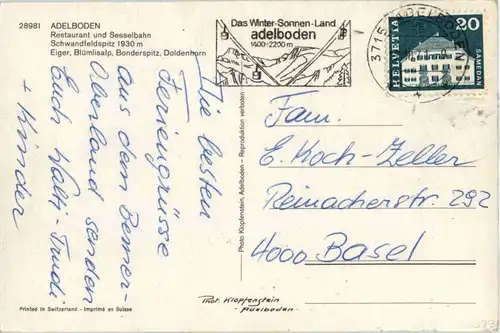 28981 ADELBODEN
Restaurant und Sesselbahn
Schwandfeldspitz 1930 m
Eiger, Blümlisalp, Bonderspitz, Doldenhorn
Die besten
Feriengrüsse
aus dem Berner-
Oberland senden
Euch Walti-Trudi
+ Kinder
Das Winter-Sonnen-Land
adelboden
1400-2200 m
3715 ADELBODEN
HELVETIA
20
SAMEDAN
Photo Klopfenstein, Adelboden - Reproduktion verboten
Fam.
E. Koch-Zeller
Reinacherstr. 292
4000 Basel
Phot. Klopfenstein
-Adelboden-
Printed in Switzerland - Imprimé en Suisse